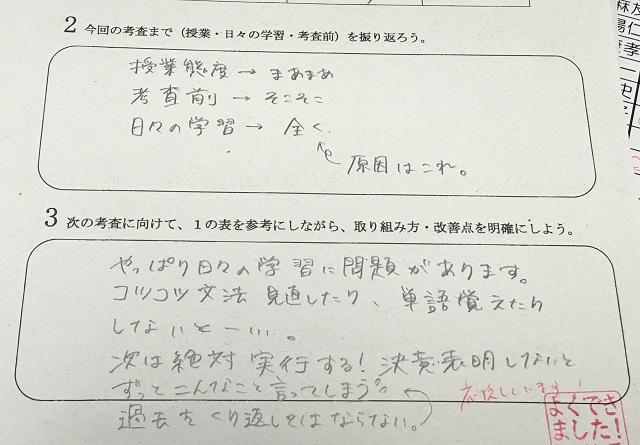 2 今回の考査まで（授業・日々の学習・考査前）を振り返ろう。
授業態度→まあまあ
考査前→そこそこ
日々の学習→全く。
原因はこれ。
3 次の考査に向けて、1の表を参考にしながら、取り組み方・改善点を明確にしよう。
やっぱり日々の学習に問題があります。
コツコツ文法見直したり、単語覚えたり
しないと……。
次は絶対実行する！決意表明しないと
ずっとこんなこと言ってしまう。
過去をくり返してはならない。）
よくでき
ました!